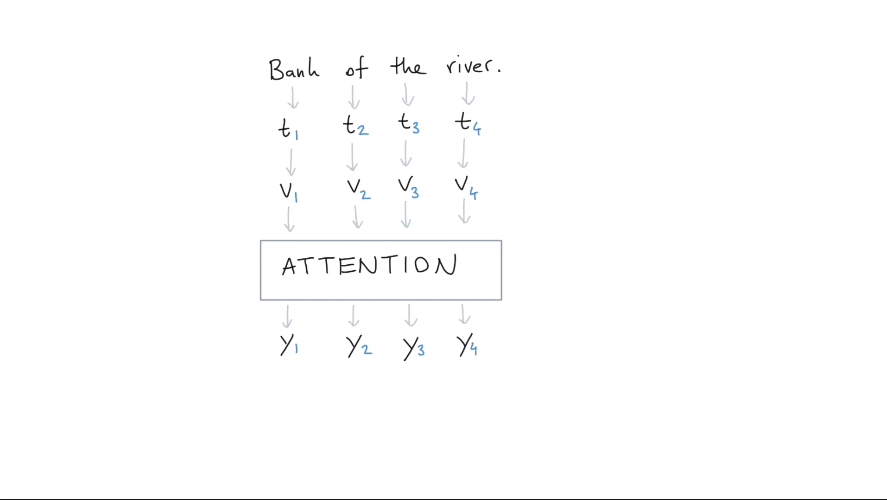 Bank of the river.
t1 t2 t3 t4
v1 v2 v3 v4
ATTENTION
y1 y2 y3 y4